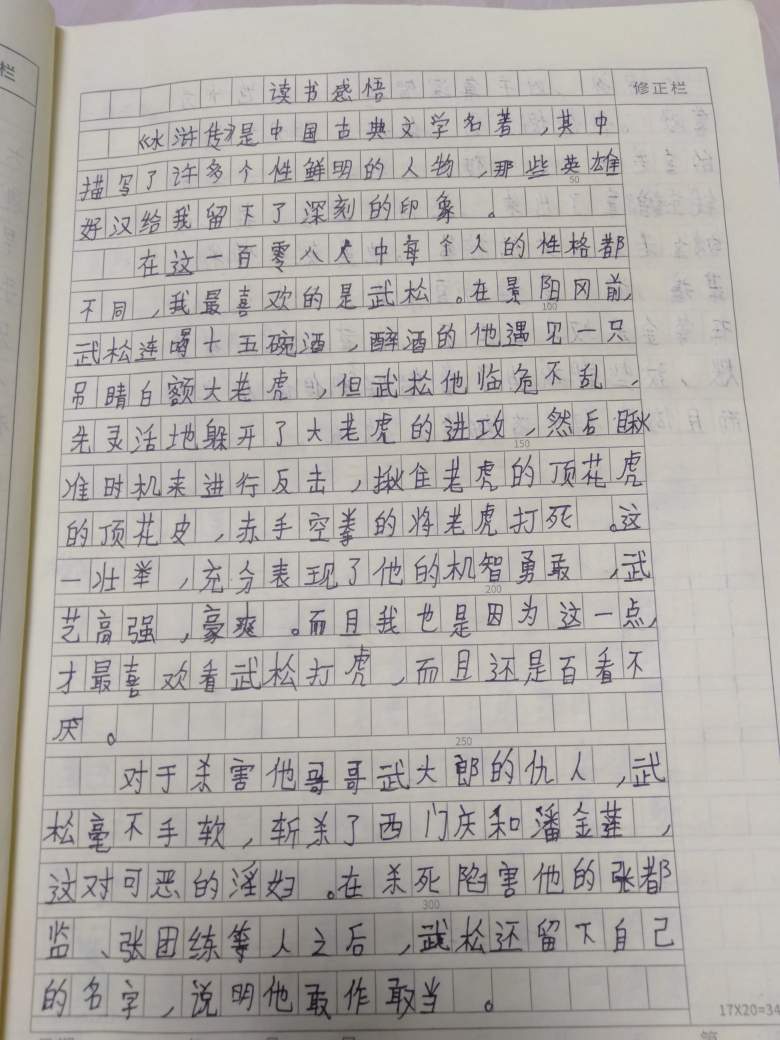 栏
读书感悟
修正栏
《水浒传》是中国古典文学名著,其中
描写了许多个性鲜明的人物,那些英雄
50
好汉给我留下了深刻的印象。
在这一百零八人中每个人的性格都
不同,我最喜欢的是武松。在景阳冈前,
100
武松连喝十五碗酒,醉酒的他遇见一只
吊睛白额大老虎,但武松他临危不乱,
先灵活地躲开了大老虎的进攻,然后瞅
150
准时机来进行反击,揪住老虎的顶花虎
的顶花皮,赤手空拳的将老虎打死。这
一壮举,充分表现了他的机智勇敢,武
200
艺高强,豪爽。而且我也是因为这一点,
才最喜欢看武松打虎,而且还是百看不
厌。
250
对于杀害他哥哥武大郎的仇人,武
松毫不手软,斩杀了西门庆和潘金莲,
这对可恶的淫妇。在杀死陷害他的张都
300
监、张团练等人之后,武松还留下自己
的名字,说明他敢作敢当。
17X20=34